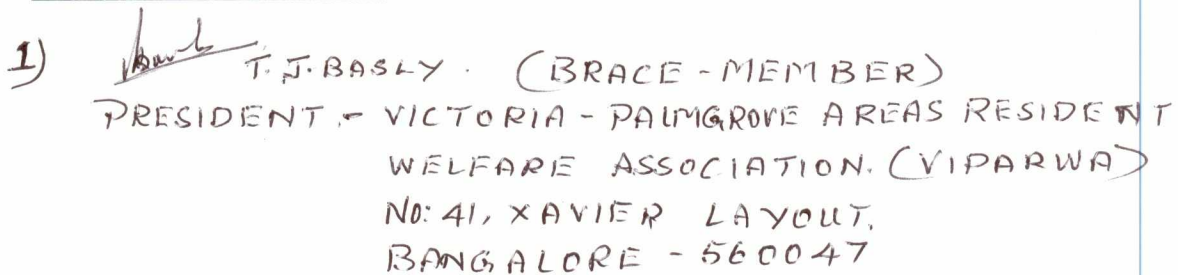 1) T. J. BASLY. (BRACE - MEMBER)
PRESIDENT - VICTORIA - PALMGROVE AREAS RESIDENT
WELFARE ASSOCIATION. (VIPARWA)
NO: 41, XAVIER LAYOUT,
BANGALORE - 560047